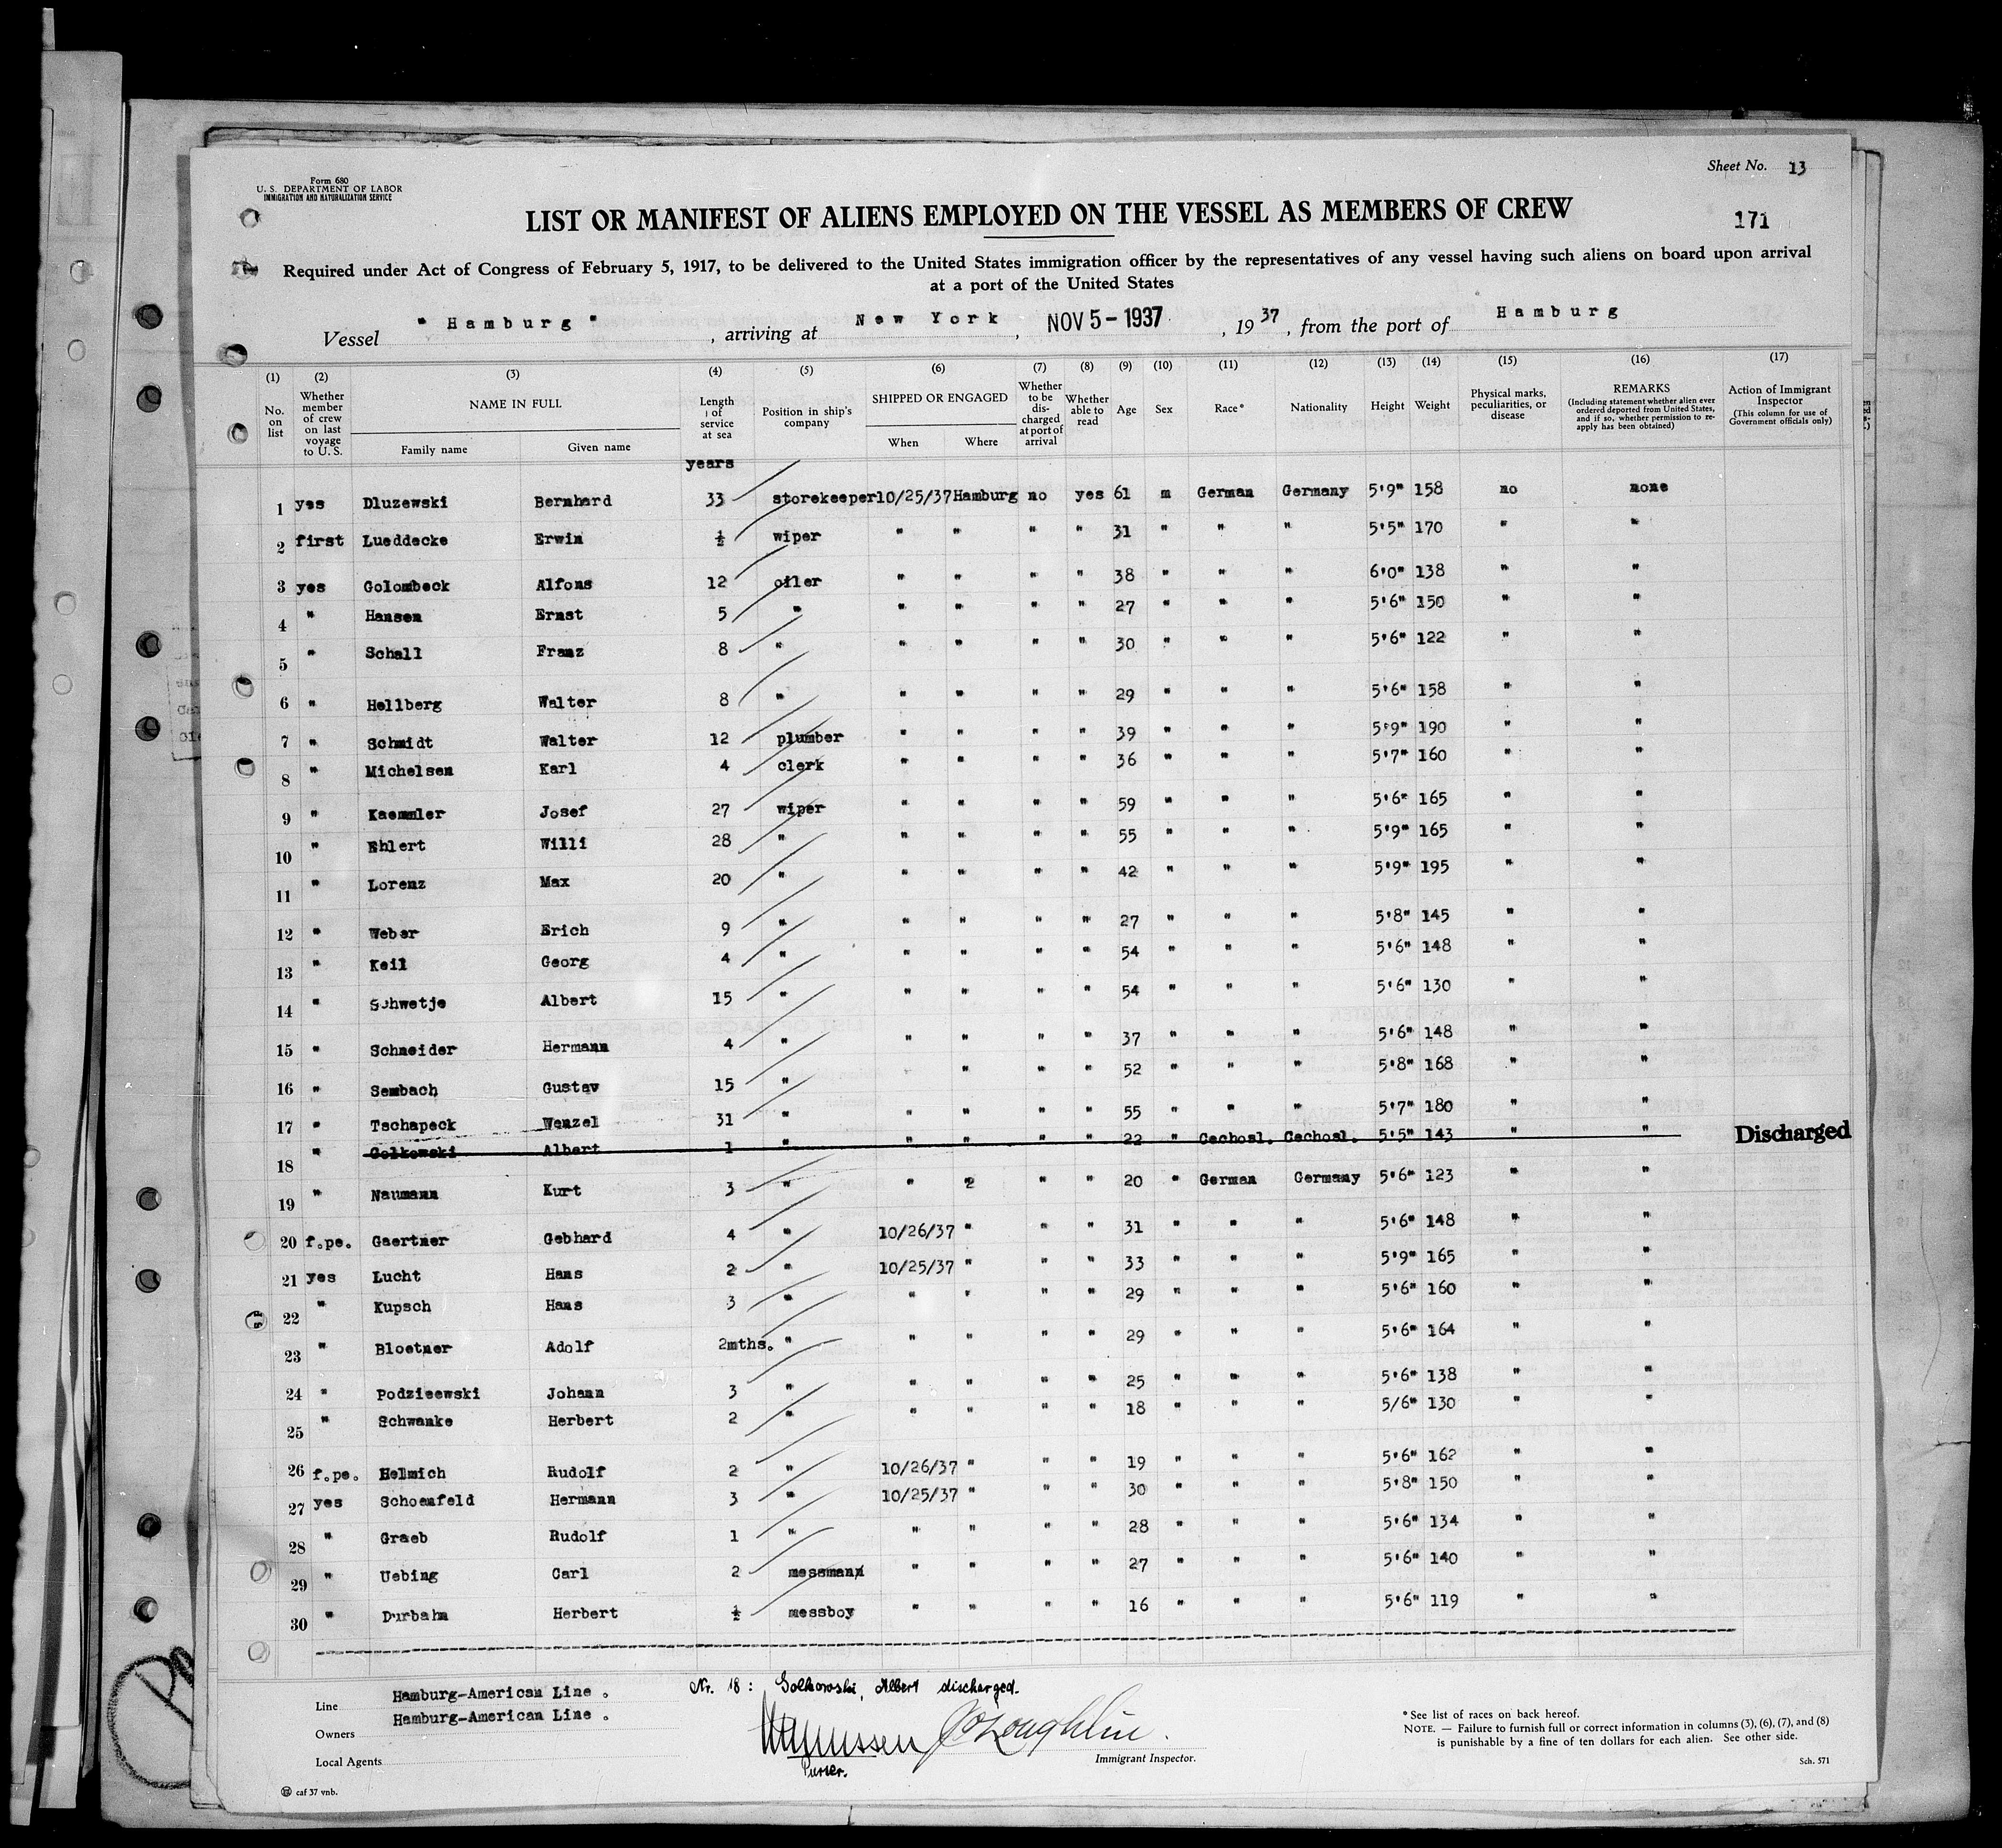 Sheet No. 13
Form 680
U. S. DEPARTMENT OF LABOR
IMMIGRATION AND NATURALIZATION SERVICE
LIST OR MANIFEST OF ALIENS EMPLOYED ON THE VESSEL AS MEMBERS OF CREW
171
Required under Act of Congress of February 5, 1917, to be delivered to the United States immigration officer by the representatives of any vessel having such aliens on board upon arrival
at a port of the United States
Vessel "Hamburg", arriving at New York, NOV 5 - 1937, 1937, from the port of Hamburg
(1) (2) (3) (4) (5) (6) (7) (8) (9) (10) (11) (12) (13) (14) (15) (16) (17)
No. on list
Whether member of crew on last voyage to U. S.
NAME IN FULL
Family name
Given name
Length of service at sea
Position in ship's company
SHIPPED OR ENGAGED
When
Where
Whether to be discharged at port of arrival
Whether able to read
Age
Sex
Race*
Nationality
Height
Weight
Physical marks, peculiarities, or disease
REMARKS
(Including statement whether alien ever ordered deported from United States, and if so, whether permission to re-apply has been obtained)
Action of Immigrant Inspector
(This column for use of Government officials only)
years
1 yes Dluzewski Bernhard 33 storekeeper 10/25/37 Hamburg no yes 61 m German Germany 5'9" 158 no none
2 first Lueddecke Erwin ½ wiper " " " " 31 " " " 5'5" 170 " "
3 yes Golombeck Alfons 12 oiler " " " " 38 " " " 6'0" 138 " "
4 " Hansen Ernst 5 " " " " " 27 " " " 5'6" 150 " "
5 " Schall Franz 8 " " " " " 30 " " " 5'6" 122 " "
6 " Hellberg Walter 8 " " " " " 29 " " " 5'6" 158 " "
7 " Schmidt Walter 12 plumber " " " " 39 " " " 5'9" 190 " "
8 " Michelsen Karl 4 clerk " " " " 36 " " " 5'7" 160 " "
9 " Kaemmler Josef 27 wiper " " " " 59 " " " 5'6" 165 " "
10 " Ehlert Willi 28 " " " " " 55 " " " 5'9" 165 " "
11 " Lorenz Max 20 " " " " " 42 " " " 5'9" 195 " "
12 " Weber Erich 9 " " " " " 27 " " " 5'8" 145 " "
13 " Keil Georg 4 " " " " " 54 " " " 5'6" 148 " "
14 " Schwetje Albert 15 " " " " " 54 " " " 5'6" 130 " "
15 " Schneider Hermann 4 " " " " " 37 " " " 5'6" 148 " "
16 " Sembach Gustav 15 " " " " 52 " " " 5'8" 168 " "
17 " Tschapeck Wenzel 31 " " " " " 55 " " " 5'7" 180 " "
18 " Golkowski Albert 1 " " " " " 22 " Cechosl. Cechosl. 5'5" 143 " " Discharged
19 " Naumann Kurt 3 " " 2 " " 20 " German Germany 5'6" 123 " "
20 f.pe. Gaertner Gebhard 4 " 10/26/37 " " " 31 " " " 5'6" 148 " "
21 yes Lucht Hans 2 " 10/25/37 " " " 33 " " " 5'9" 165 " "
22 " Kupsch Hans 3 " " " " " 29 " " " 5'6" 160 " "
23 " Bloetner Adolf 2mths. " " " " " 29 " " " 5'6" 164 " "
24 " Podzieewski Johann 3 " " " " " 25 " " " 5'6" 138 " "
25 " Schwanke Herbert 2 " " " " " 18 " " " 5/6" 130 " "
26 f.pe. Helmich Rudolf 2 " 10/26/37 " " " 19 " " " 5'6" 162 " "
27 yes Schoenfeld Hermann 3 " 10/25/37 " " " 30 " " " 5'8" 150 " "
28 " Graeb Rudolf 1 " " " " " 28 " " " 5'6" 134 " "
29 " Uebing Carl 2 messmann " " " " 27 " " " 5'6" 140 " "
30 " Durbahn Herbert ½ messboy " " " " 16 " " " 5'6" 119 " "
Nr. 18: Golkowski, Albert discharged.
Line Hamburg-American Line.
Owners Hamburg-American Line.
Local Agents
Purser.
Immigrant Inspector.
* See list of races on back hereof.
NOTE. — Failure to furnish full or correct information in columns (3), (6), (7), and (8)
is punishable by a fine of ten dollars for each alien. See other side.
Sch. 571
caf 37 vnb.